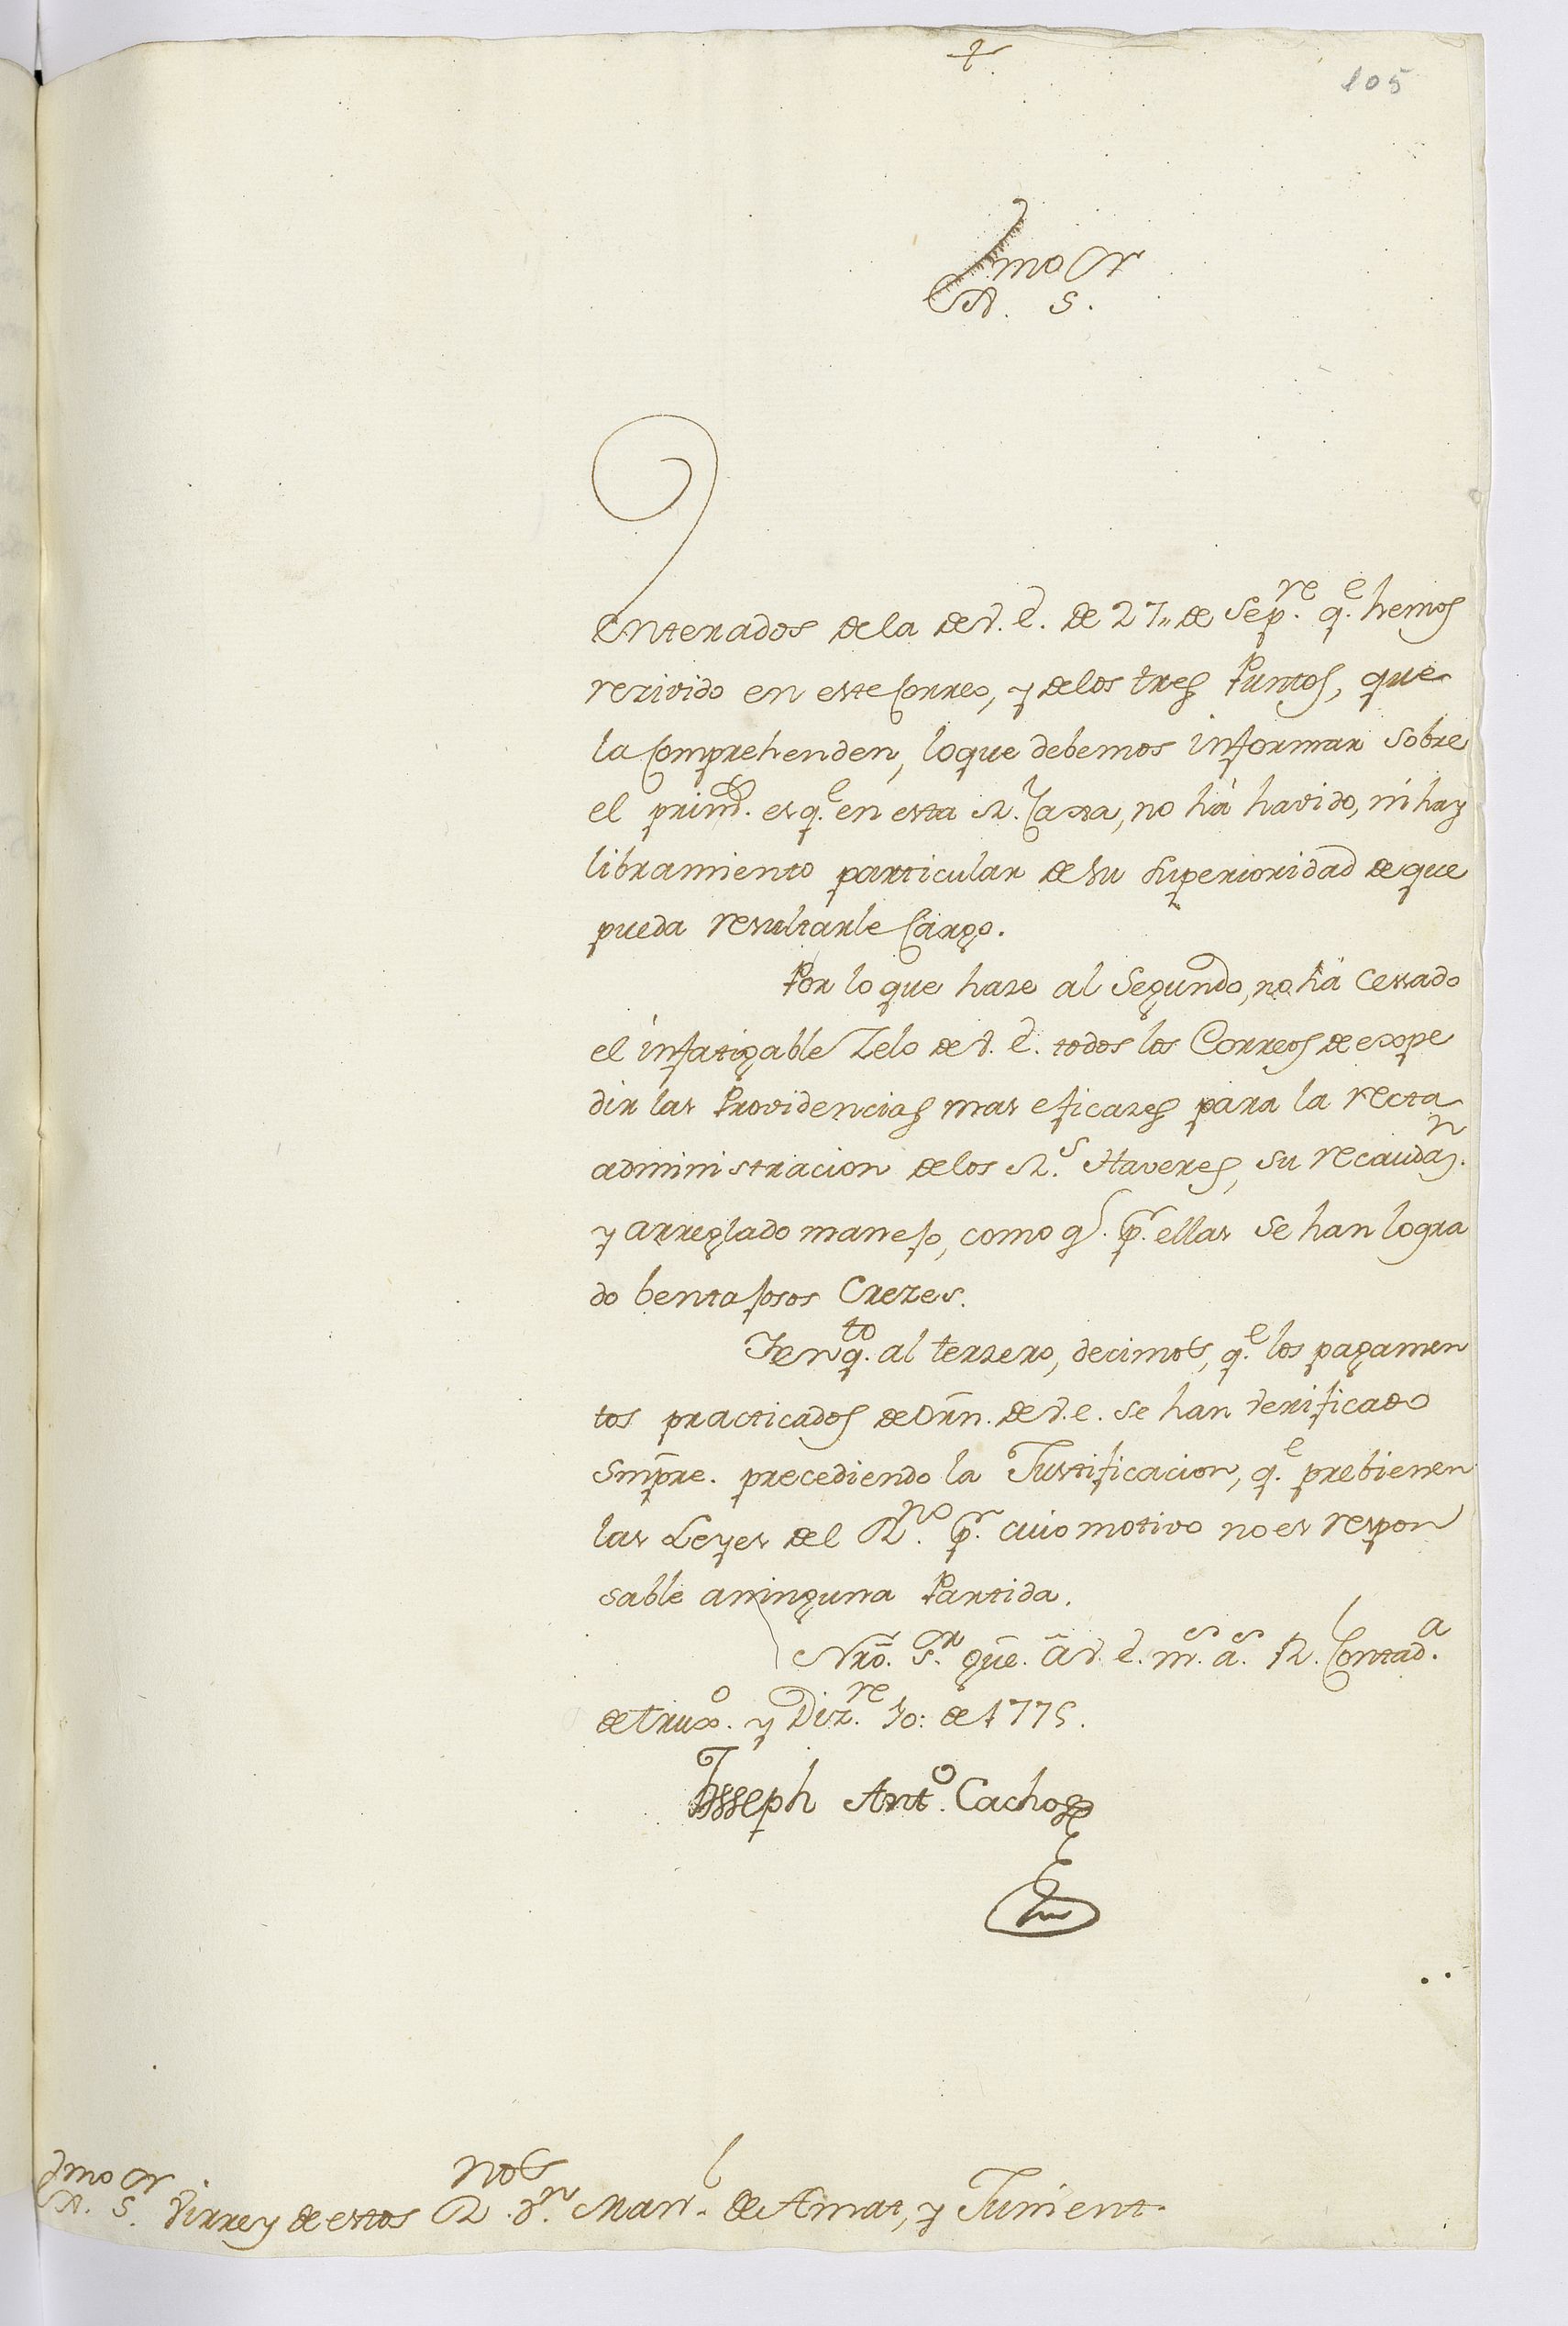 +
105
Exmo Sr
S.
Enterados de la de V. E. de 27,, de Sepre. qe. hemos
rezivido en este Correo, y delos tres Puntos, que
la Comprehenden, loque debemos informar sobre
el primo. es qe. en esta Rl. Caxa, no há havido, ni hay
libramiento particular de su Superioridad de que
pueda resultarle Cargo.
Por lo que haze al Segundo, no há Cessado
el infatigable Zelo de V. E. todos los Correos de expe
dir las Providencias mas eficazes para la recta
administracion delos Rs. Haveres, su recaudazn.
y arreglado manejo, como qe. pr. ellas se han logra
do bentajosos Crezes.
Y en qto. al terzero, decimos, qe. los pagamen
tos practicados de Orñ. de V. E. se han verificado
Smpre. precediendo la Justificacion, qe. prebienen
las Leyes del Rno. pr. cuio motivo no es respon
sable aninguna Partida.
Nrõ. Sr. güe. à V. E. ms. as. Rl. Contada.
de Truxo. y Dizre. 10: de 1775.
Joseph Anto. Cachos
Exmo Sr
S. Virrey de estos Rnos. Dn. Manl. de Amat, y Junient.